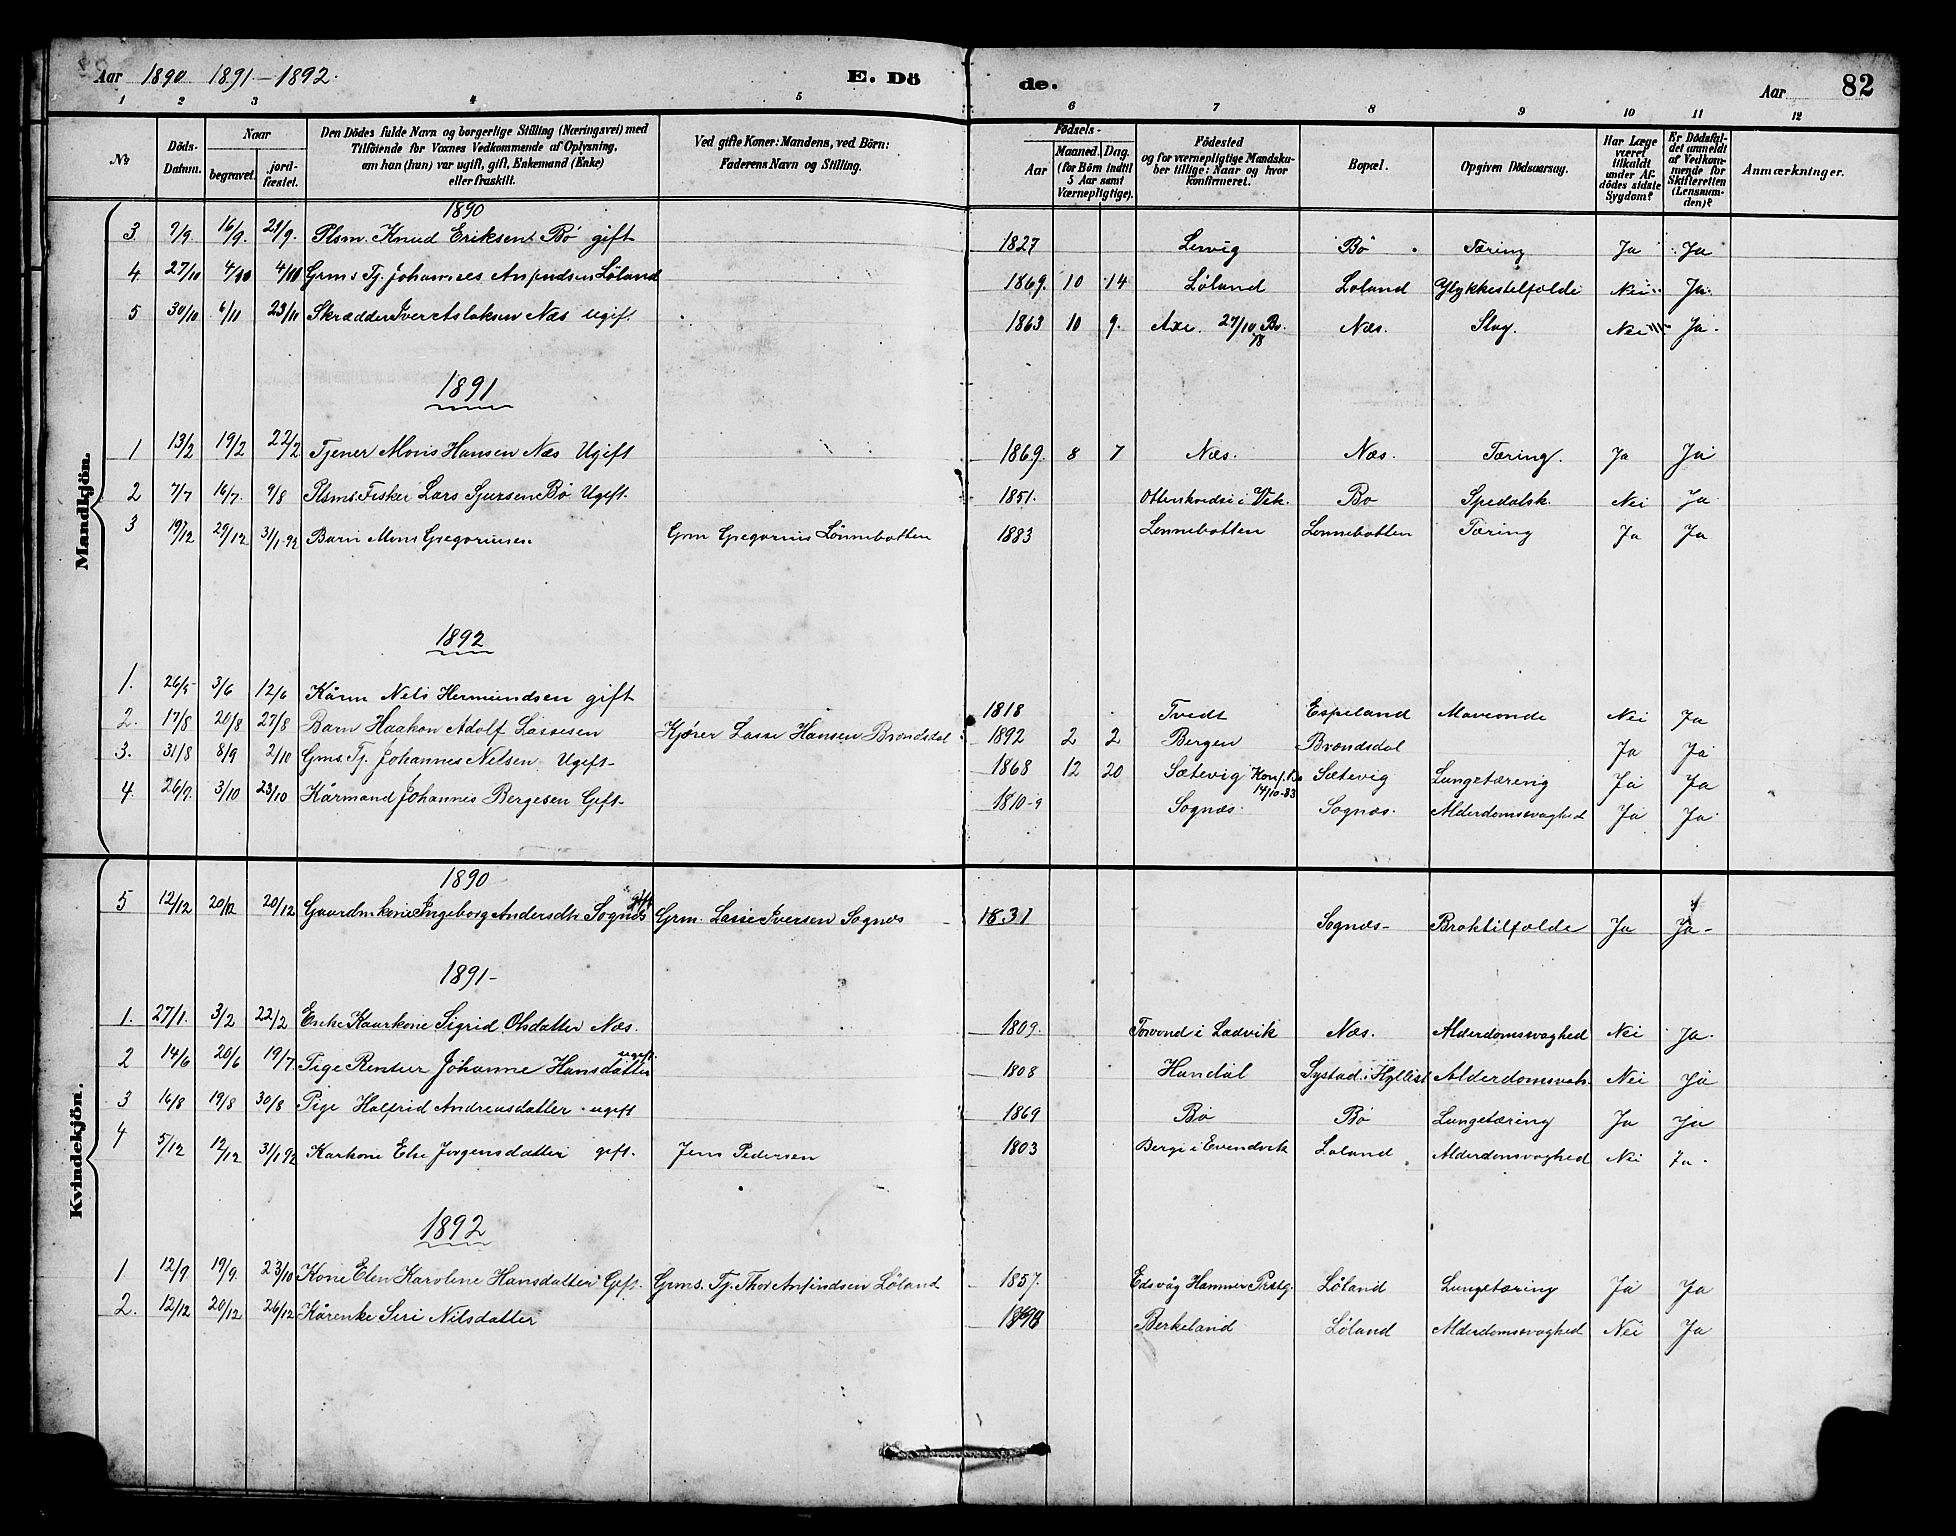 Aar 1890 1891-1892. E. Dö de. Aar 82
1 2 3 4 5 6 7 8 9 10 11 12
No
Döds-Datum.
Naar begravet. jordfæstet.
Den Dödes fulde Navn og borgerlige Stilling (Næringsvei) med Tilföiende for Voxnes Vedkommende af Oplysning, om han (hun) var ugift, gift, Enkemand (Enke) eller fraskilt.
Ved gifte Koner: Mandens, ved Börn: Faderens Navn og Stilling.
Födsels- Aar Maaned. Dag. (for Börn indtil 5 Aar samt Værnepligtige).
Födested og for værnepligtige Mandskaber tillige: Naar og hvor konfirmeret.
Bopæl.
Opgiven Dödsaarsag.
Har Læge været tilkaldt under Afdödes sidste Sygdom?
Er Dödsfaldet anmeldt af Vedkommende for Skifteretten (Lensmanden)?
Anmærkninger.
Mandkjön.
1890
3 7/9 16/9. 21/9. Plsm. Knud Eriksen Bø gift 1827 Lervig Bø Tæring Ja Ja
4 27/10 4/10 4/10 Grms Tj. Johannes Anfindsen Løland 1869. 10 14 Løland Løland Ulykkestilfælde Nei Ja.
5 30/10 6/11 23/11 Skrædder Iver Aslaksen Næs ugift 1863 10 9. Axe. 27/10 78 Bø. Næs. Slag. Nei Ja.
1891
1 13/2 19/2 22/2 Tjener Mons Hansen Næs Ugift 1869. 8 7 Næs. Næs. Tæring. Ja Ja
2 7/7 16/7. 9/8 Plsms. Fisker Lars Sjursen Bø Ugift. 1851. i Vik. Bø Spedalsk. Nei Ja
3 19/12 29/12 31/1-92 Barn Mons Gregoriusen Grm Gregorius Lønnebotten 1883 Lønnebotten Lønnebotten Tæring Ja Ja
1892
1. 26/5 3/6 12/6 Kårm Nels Hermundsen gift 1818 Tvedt Espeland Maveonde Nei Ja
2. 17/8 20/8 27/8 Barn Haakon Adolf Lassesen Kjører Lasse Hansen Brondsdal 1892 2 2 Bergen Brondsdal Ja Ja
3. 31/8 8/9 2/10 Gms. Tj. Johannes Nelsen Ugift- 1868 12 20 Sætevig Konf. Bø 14/10-83 Sætevig Lungetæring Ja Ja
4. 26/9. 3/10 23/10 Kårmand Johannes Bergesen Gift- 1810-9 Sognæs. Sognæs. Alderdomssvaghed Ja Ja
Kvindekjön.
1890
5 12/12 20/12 20/12 Gaardmkone Ingeborg Andersdtr Sognæs gift Grm. Lasse Iversen Sognæs 1831 Sognæs- Broktilfælde Ja Ja-
1891-
1. 27/1. 3/2 22/2 Enke Kaarkone Sigrid Olsdatter Næs. 1809. i Ladvik Næs. Alderdomsvaghed Nei Ja.
2 14/6 20/6 19/7 Pige Johanne Hansdatter ugift. 1808 Hundal Systad i Hyllest Alderdomsvah. Nei Ja
3 16/8 19/8 30/8 Pige Halfrid Andreasdatter. ugift 1869 Bø Bø Lungetæring Ja Ja
4 5/12 12/12 31/1 92 Karkone Else Jørgensdatter gift. Jens Pedersen 1803 i Evendvik Løland Alderdomsvaghed Nei Ja.
1892
1 12/9 19/9. 23/10 Kone Elen Karoline Hansdatter Gift. Grms. Tj. Thor Anfindsen Løland 1857. Edsvåg Hammer Præstg. Løland Lungetæring Ja Ja
2. 12/12 20/12 26/12 Kårenke Siri Nilsdatter Berkeland Løland Alderdomssvaghed Nei Ja